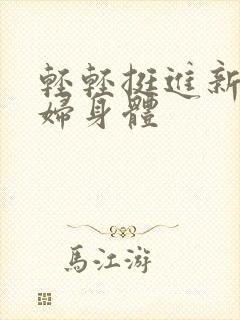 輕輕挺進新
婦身體
馬江游